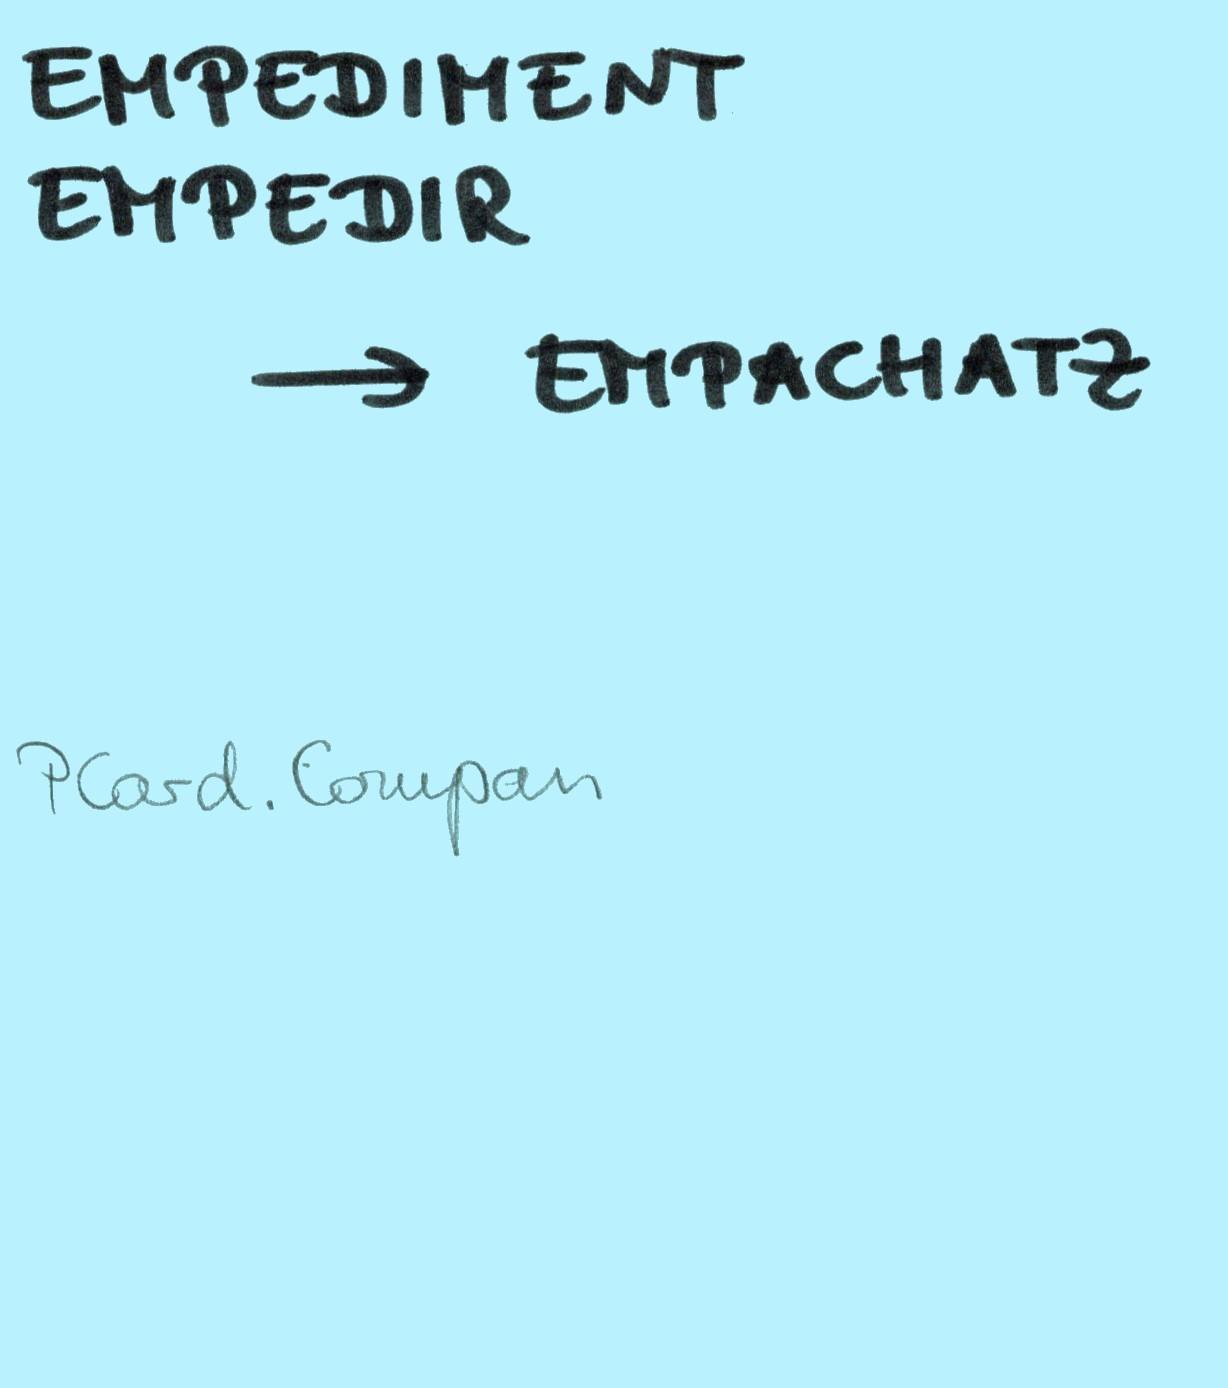 EMPEDIMENT
EMPEDIR
→ EMPACHATZ
PCard. Compan